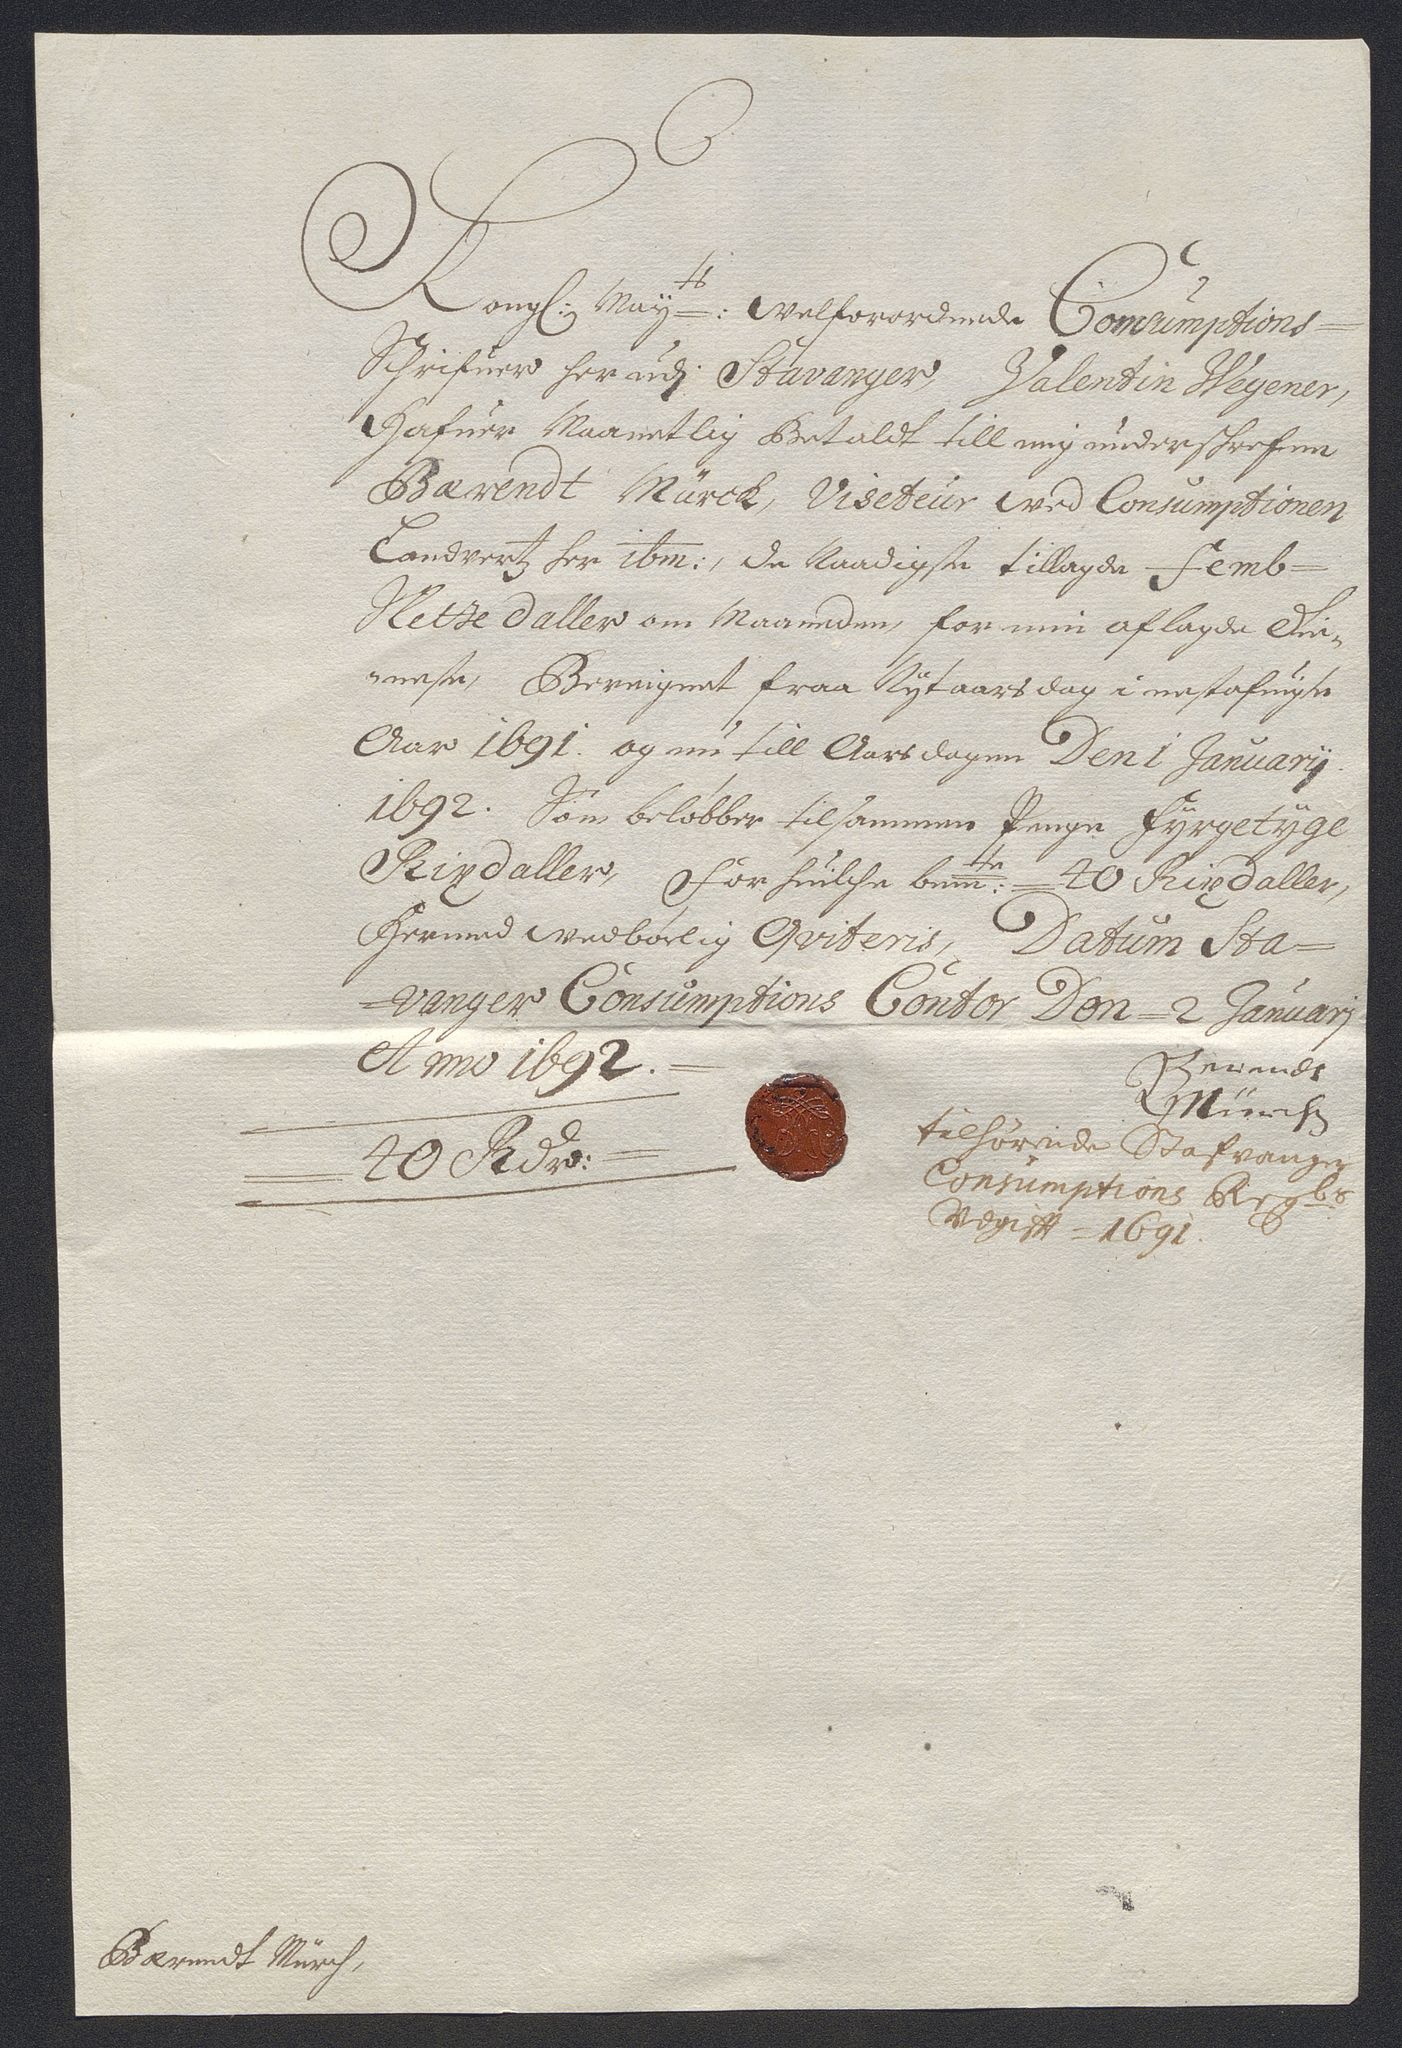 Kongl: Mayts: welforordnede Consumptions=
Schrifuer her udj Stavanger, Valentin Wegener,
Hafuer Maanetlig Betaldt till mig underschrefne
Barendt Mürck, Viseteur wed Consumptionen
Landvertz her ibm:, de Naadigste tillagde femb=
Slette daller om Maaneden, for min aflagde Tie=
=neste, Bereignet fraa Nytaarsdag i nestafuigte
Aar 1691. og nu till Aarsdagen Den 1 Januarij
1692. Som beløbber tilsammen Penge fyrgetyge
Rixdaller, For huilche bemte: =40 Rixdaller,
Hermed wedbørlig Qviteris, Datum Sta=
=vanger Consumptions Contor Den =2 Januarj
Anno 1692. =
= 40 Rdr: =
Berendt
Mürch
tilhørende Stafvanger
Consumptions Regbs
= 1691.
Barendt Mürch,